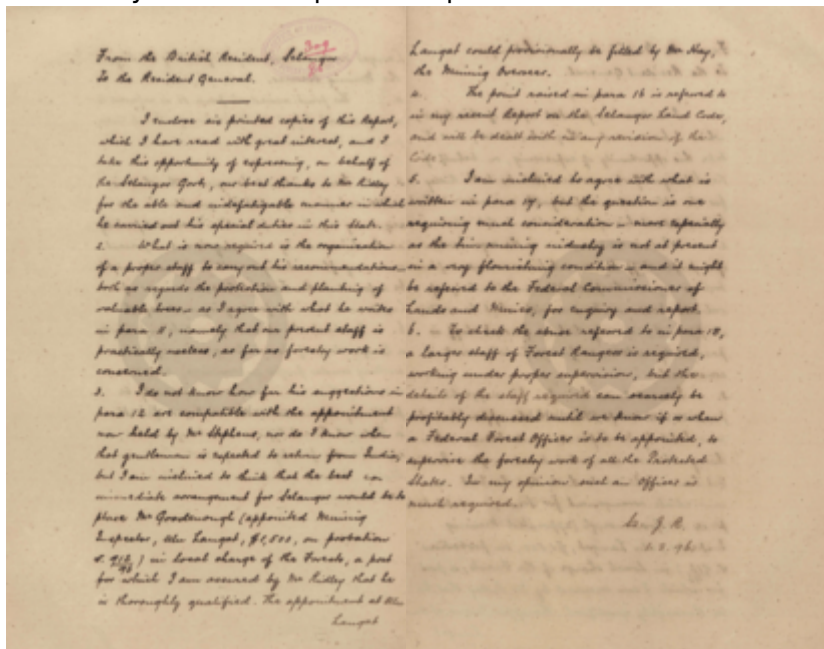 From the British Resident, Selangor
To the Resident General.
309
I enclose six printed copies of this Report,
which I have read with great interest, and I
take this opportunity of expressing, on behalf of
the Selangor Govt, our best thanks to Mr Ridley
for the able and indefatigable manner in which
he carried out his special duties in this State.
2. What is now required is the organization
of a proper staff to carry out his recommendations
both as regards the protection and planting of
valuable trees as I agree with what he writes
in para 11, namely that our present staff is
practically useless, as far as forestry work is
concerned.
3. I do not know how far his suggestions in
para 12 are compatible with the appointment
now held by Mr Stephens, nor do I know when
that gentleman is expected to return from India,
but I am inclined to think that the best
immediate arrangement for Selangor would be to
place Mr Goodenough (appointed Mining
Inspector, Ulu Langat, $1,500, on probation
in local charge of the Forests, a post
for which I am assured by Mr Ridley that he
is thoroughly qualified. The appointment at Ulu
Langat
Langat could provisionally be filled by Mr Hay,
the Mining Overseer.
The point raised in para 16 is referred to
in my recent Report on the Selangor Land Code,
and will be dealt with in any revision of the
Code
5. I am inclined to agree with what is
written in para 17, but the question is one
requiring much consideration more especially
as the tin mining industry is not at present
in a very flourishing condition and it might
be referred to the Federal Commissioner of
Lands and Mines, for enquiry and report.
6. To check the abuse referred to in para 18,
a larger staff of Forest Rangers is required,
working under proper supervision, but the
details of the staff required can scarcely be
profitably discussed until we know if or when
a Federal Forest Officer is to be appointed, to
supervise the forestry work of all the Protected
States. In my opinion such an officer is
much required.